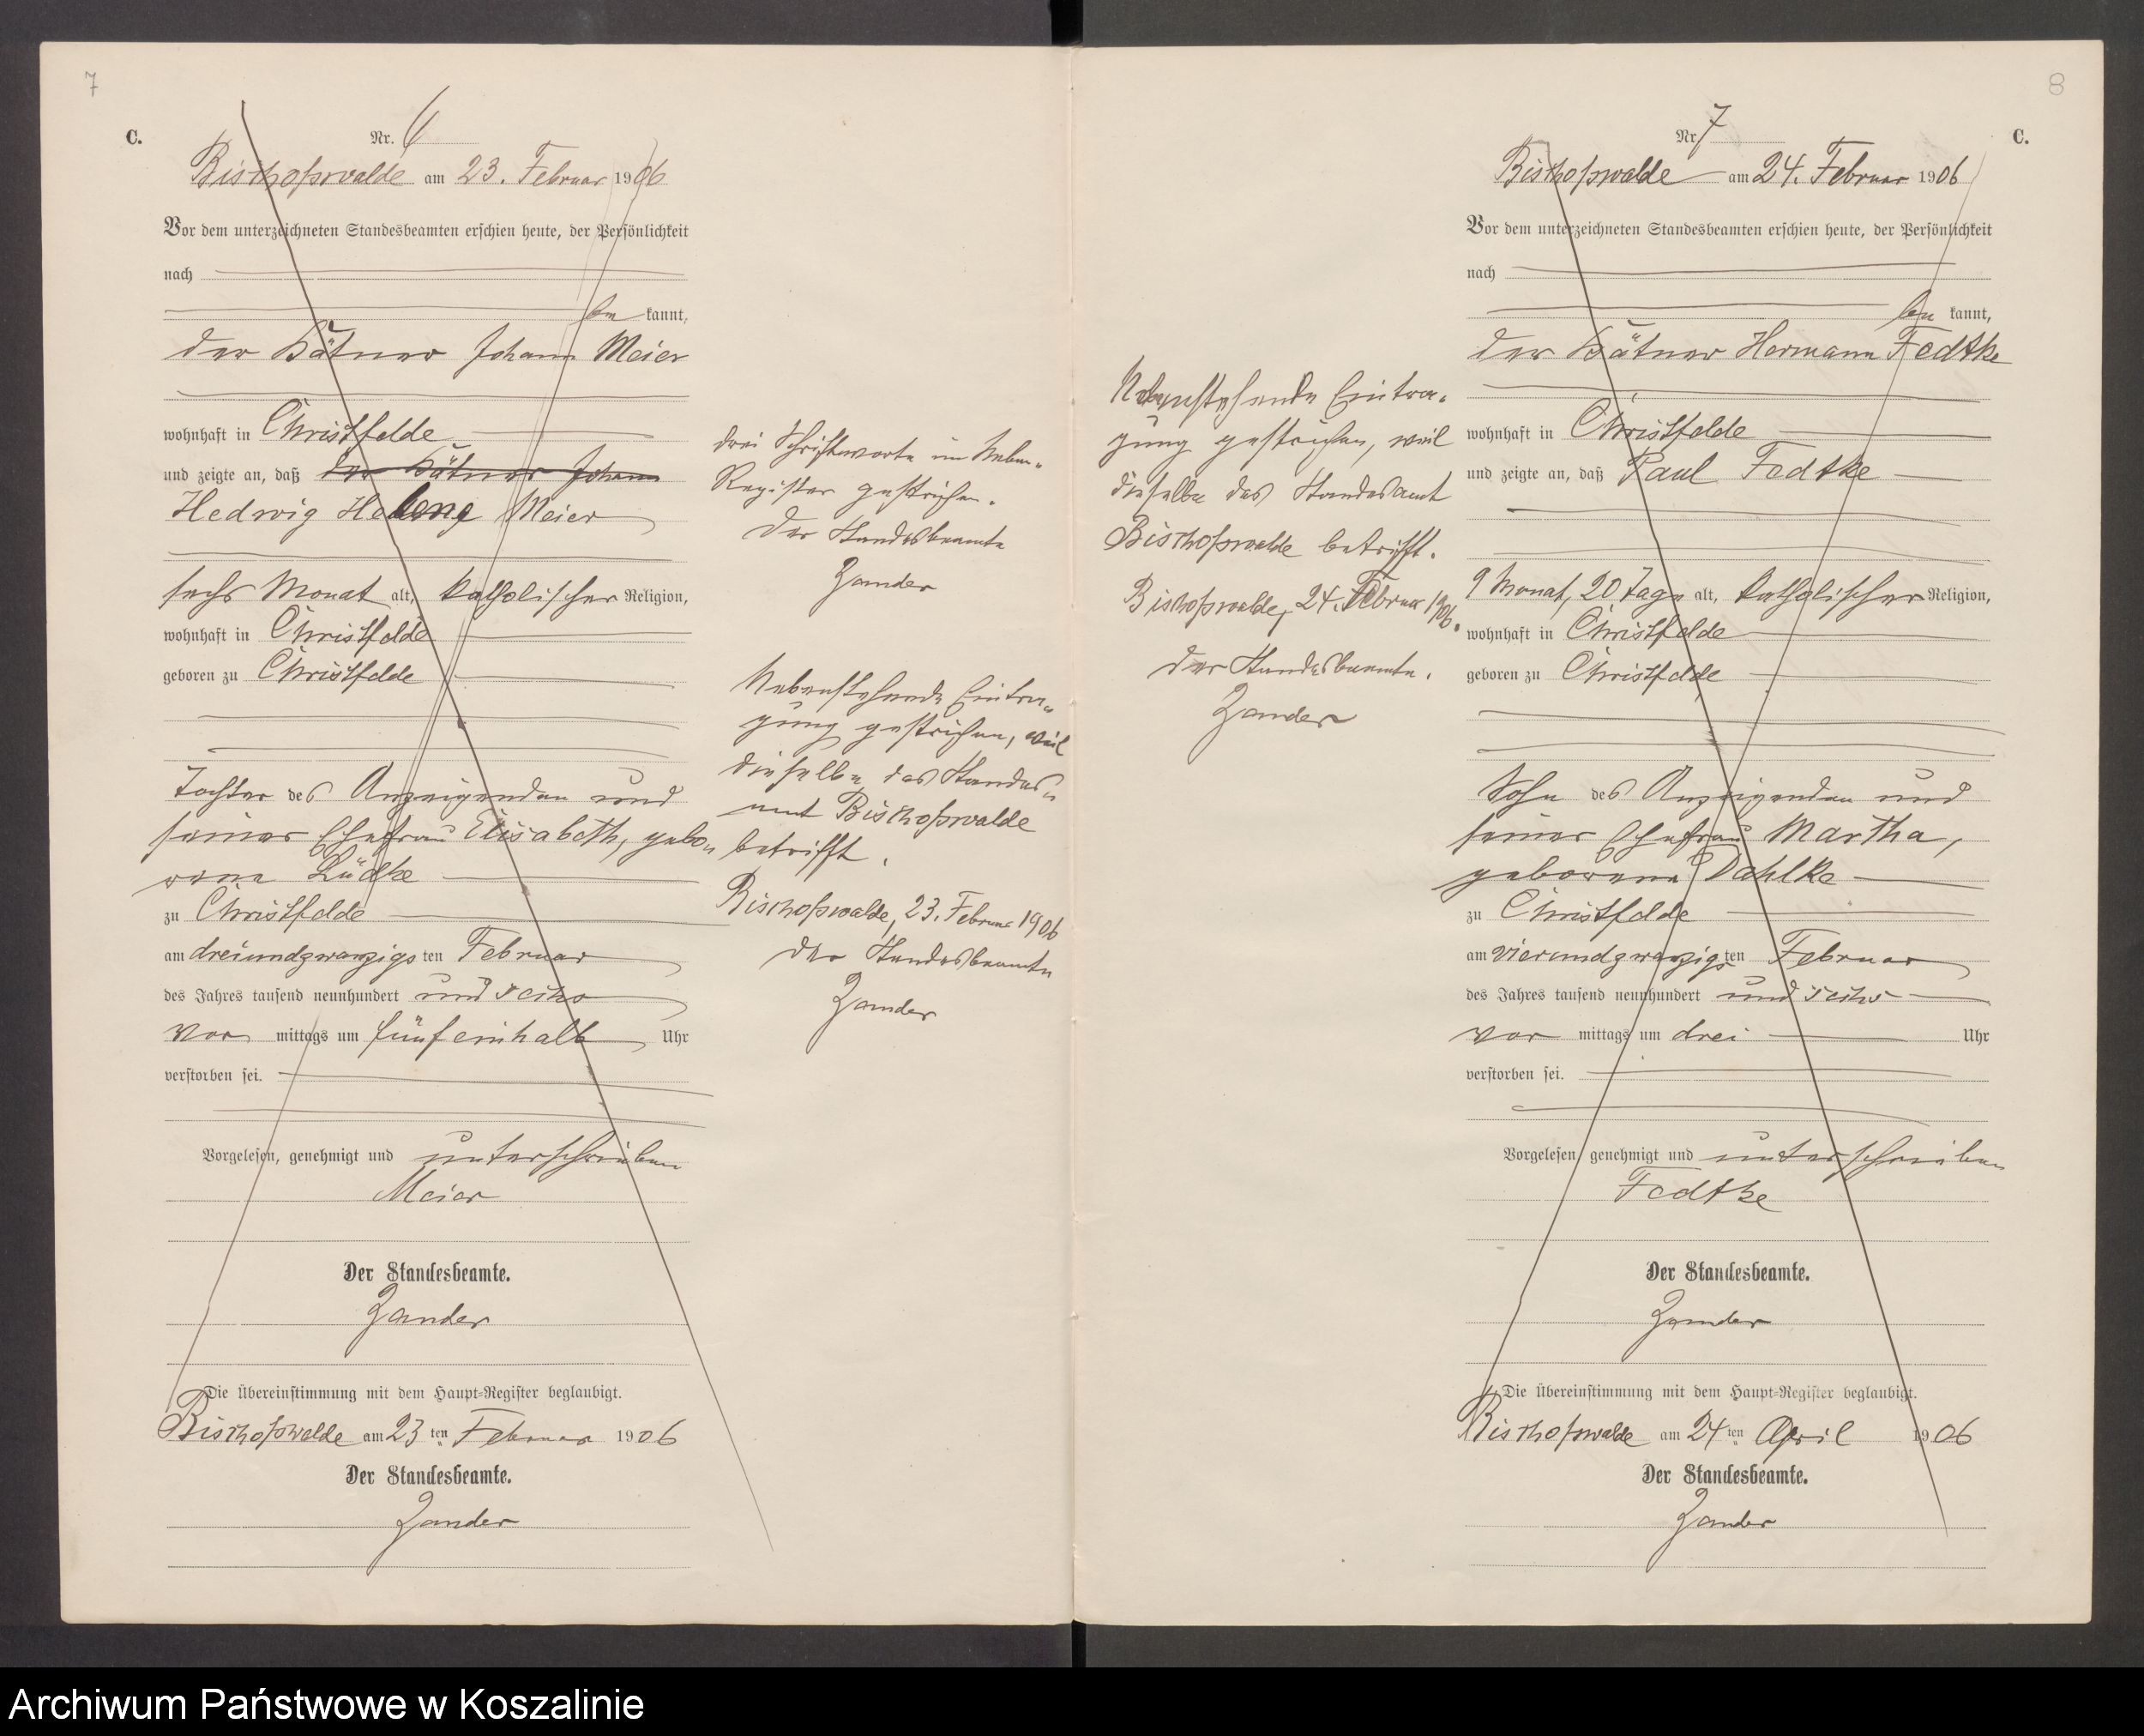 7
C.
Nr. 6
Bischofswalde am 23. Februar 1906
Vor dem unterzeichneten Standesbeamten erschien heute, der Persönlichkeit
nach
be kannt,
der Kätner Johann Meier
wohnhaft in Christfelde
und zeigte an, daß der Kätner Johann
Hedwig Helene Meier
sechs Monat alt, katholischer Religion,
wohnhaft in Christfelde
geboren zu Christfelde
Tochter des Anzeigenden und
seiner Ehefrau Elisabeth, gebo-
rene Lüdke
zu Christfelde
am dreiundzwanzigsten Februar
des Jahres tausend neunhundert und sechs
vor mittags um fünfeinhalb Uhr
verstorben sei.
Vorgelesen, genehmigt und unterschrieben
Meier
Der Standesbeamte.
Zander
Die Übereinstimmung mit dem Haupt-Register beglaubigt.
Bischofswalde am 23 ten Februar 1906
Der Standesbeamte.
Zander
drei Schriftworte im Neben-
Register gestrichen.
Der Standesbeamte
Zander
Nebenstehende Eintra-
gung gestrichen, weil
dieselbe das Standes-
amt Bischofswalde
betrifft.
Bischofswalde, 23. Februar 1906
Der Standesbeamte
Zander
8
C.
Nr. 7
Bischofswalde am 24. Februar 1906
Vor dem unterzeichneten Standesbeamten erschien heute, der Persönlichkeit
nach
be kannt,
der Kätner Hermann Fedtke
wohnhaft in Christfelde
und zeigte an, daß Paul Fedtke
9 Monat, 20 Tage alt, katholischer Religion,
wohnhaft in Christfelde
geboren zu Christfelde
Sohn des Anzeigenden und
seiner Ehefrau Martha,
geborene Dahlke
zu Christfelde
am vierundzwanzigsten Februar
des Jahres tausend neunhundert und sechs
vor mittags um drei Uhr
verstorben sei.
Vorgelesen, genehmigt und unterschrieben
Fedtke
Der Standesbeamte.
Zander
Die Übereinstimmung mit dem Haupt-Register beglaubigt.
Bischofswalde am 24 ten April 1906
Der Standesbeamte.
Zander
Nebenstehende Eintra-
gung gestrichen, weil
dieselbe das Standesamt
Bischofswalde betrifft.
Bischofswalde, 24. Februar 1906.
Der Standesbeamte.
Zander
Archiwum Państwowe w Koszalinie